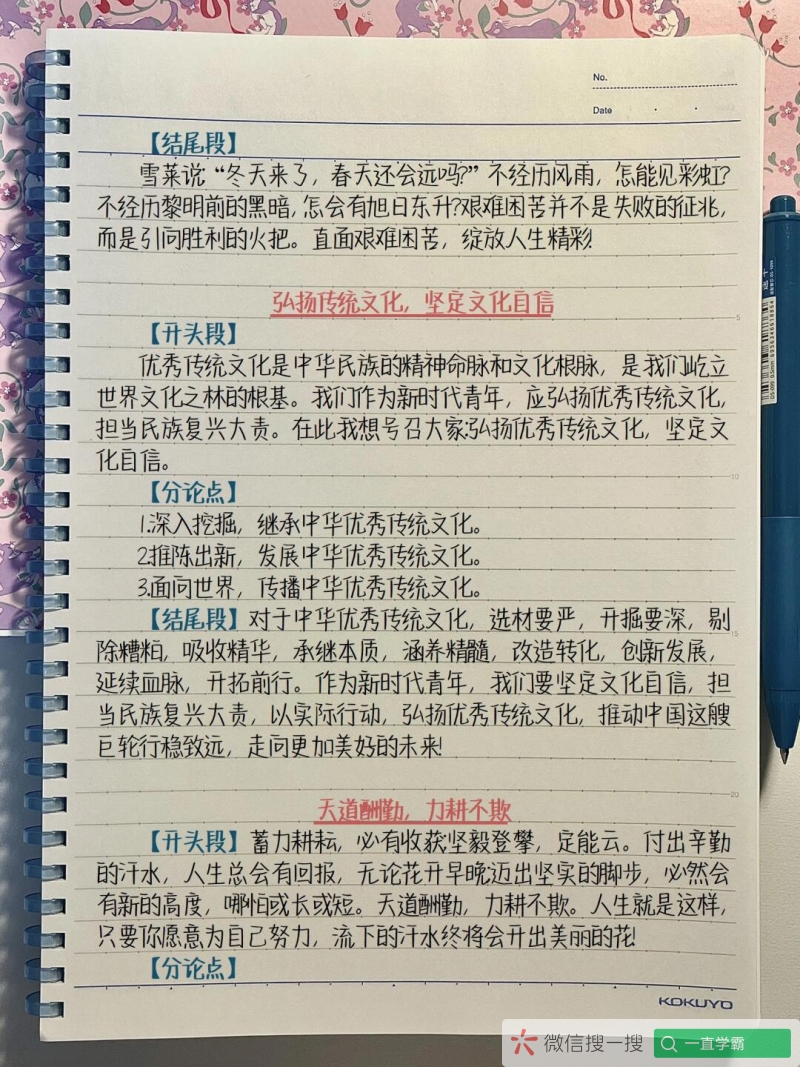 No.
Date
【结尾段】
雪莱说:“冬天来了，春天还会远吗?”不经历风雨，怎能见彩虹?
不经历黎明前的黑暗,怎会有旭日东升?艰难困苦并不是失败的征兆,
而是引向胜利的火把。直面艰难困苦，绽放人生精彩!
弘扬传统文化，坚定文化自信
5
【开头段】
优秀传统文化是中华民族的精神命脉和文化根脉，是我们屹立
世界文化之林的根基。我们作为新时代青年，应弘扬优秀传统文化,
担当民族复兴大责。在此我想号召大家弘扬优秀传统文化，坚定文
化自信。
10
【分论点】
1.深入挖掘，继承中华优秀传统文化。
2.推陈出新，发展中华优秀传统文化。
3.面向世界，传播中华优秀传统文化。
【结尾段】对于中华优秀传统文化，选材要严，开掘要深，剔
15
除糟粕，吸收精华，承继本质，涵养精髓，改造转化，创新发展，
延续血脉，开拓前行。作为新时代青年，我们要坚定文化自信，担
当民族复兴大责，以实际行动，弘扬优秀传统文化，推动中国这艘
巨轮行稳致远，走向更加美好的未来!
20
天道酬勤，力耕不欺
【开头段】蓄力耕耘，必有收获坚毅登攀，定能云。付出辛勤
的汗水，人生总会有回报，无论花开早晚迈出坚实的脚步，必然会
有新的高度，哪怕或长或短。天道酬勤，力耕不欺。人生就是这样，
只要你愿意为自己努力，流下的汗水终将会开出美丽的花!
【分论点】
KOKUYO
微信搜一搜
一直学霸